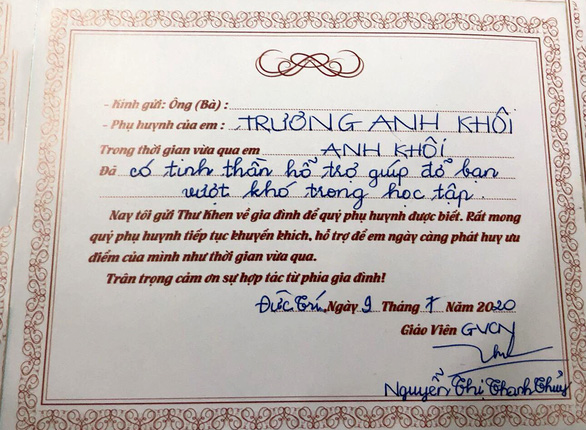 - Kính gửi: Ông (Bà) :
- Phụ huynh của em : TRƯƠNG ANH KHÔI
Trong thời gian vừa qua em ANH KHÔI
Đã có tinh thần hỗ trợ giúp đỡ bạn
vượt khó trong học tập.
Nay tôi gửi Thư Khen về gia đình để quý phụ huynh được biết. Rất mong
quý phụ huynh tiếp tục khuyến khích, hỗ trợ để em ngày càng phát huy ưu
điểm của mình như thời gian vừa qua.
Trân trọng cảm ơn sự hợp tác từ phía gia đình!
Đức Trí, Ngày 9 Tháng 7 Năm 2020
Giáo Viên GVCN
Nguyễn Thị Thanh Thủy